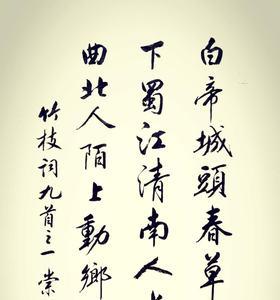 白帝城頭春草
下蜀江清南人上
曲北人陌上動鄉
竹枝詞九首之一